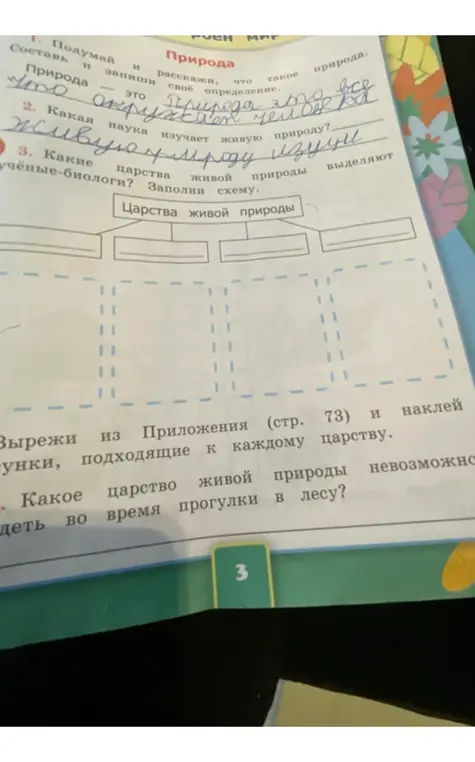 РОЕН МИР
Природа
1. Подумай и расскажи, что такое природа.
Составь и запиши своё определение.
Природа — это Природа это все
что окружает человека
2. Какая наука изучает живую природу?
живую природу изучи
3. Какие царства живой природы выделяют
учёные-биологи? Заполни схему.
Царства живой природы
Вырежи из Приложения (стр. 73) и наклей
унки, подходящие к каждому царству.
. Какое царство живой природы невозможно
деть во время прогулки в лесу?
3